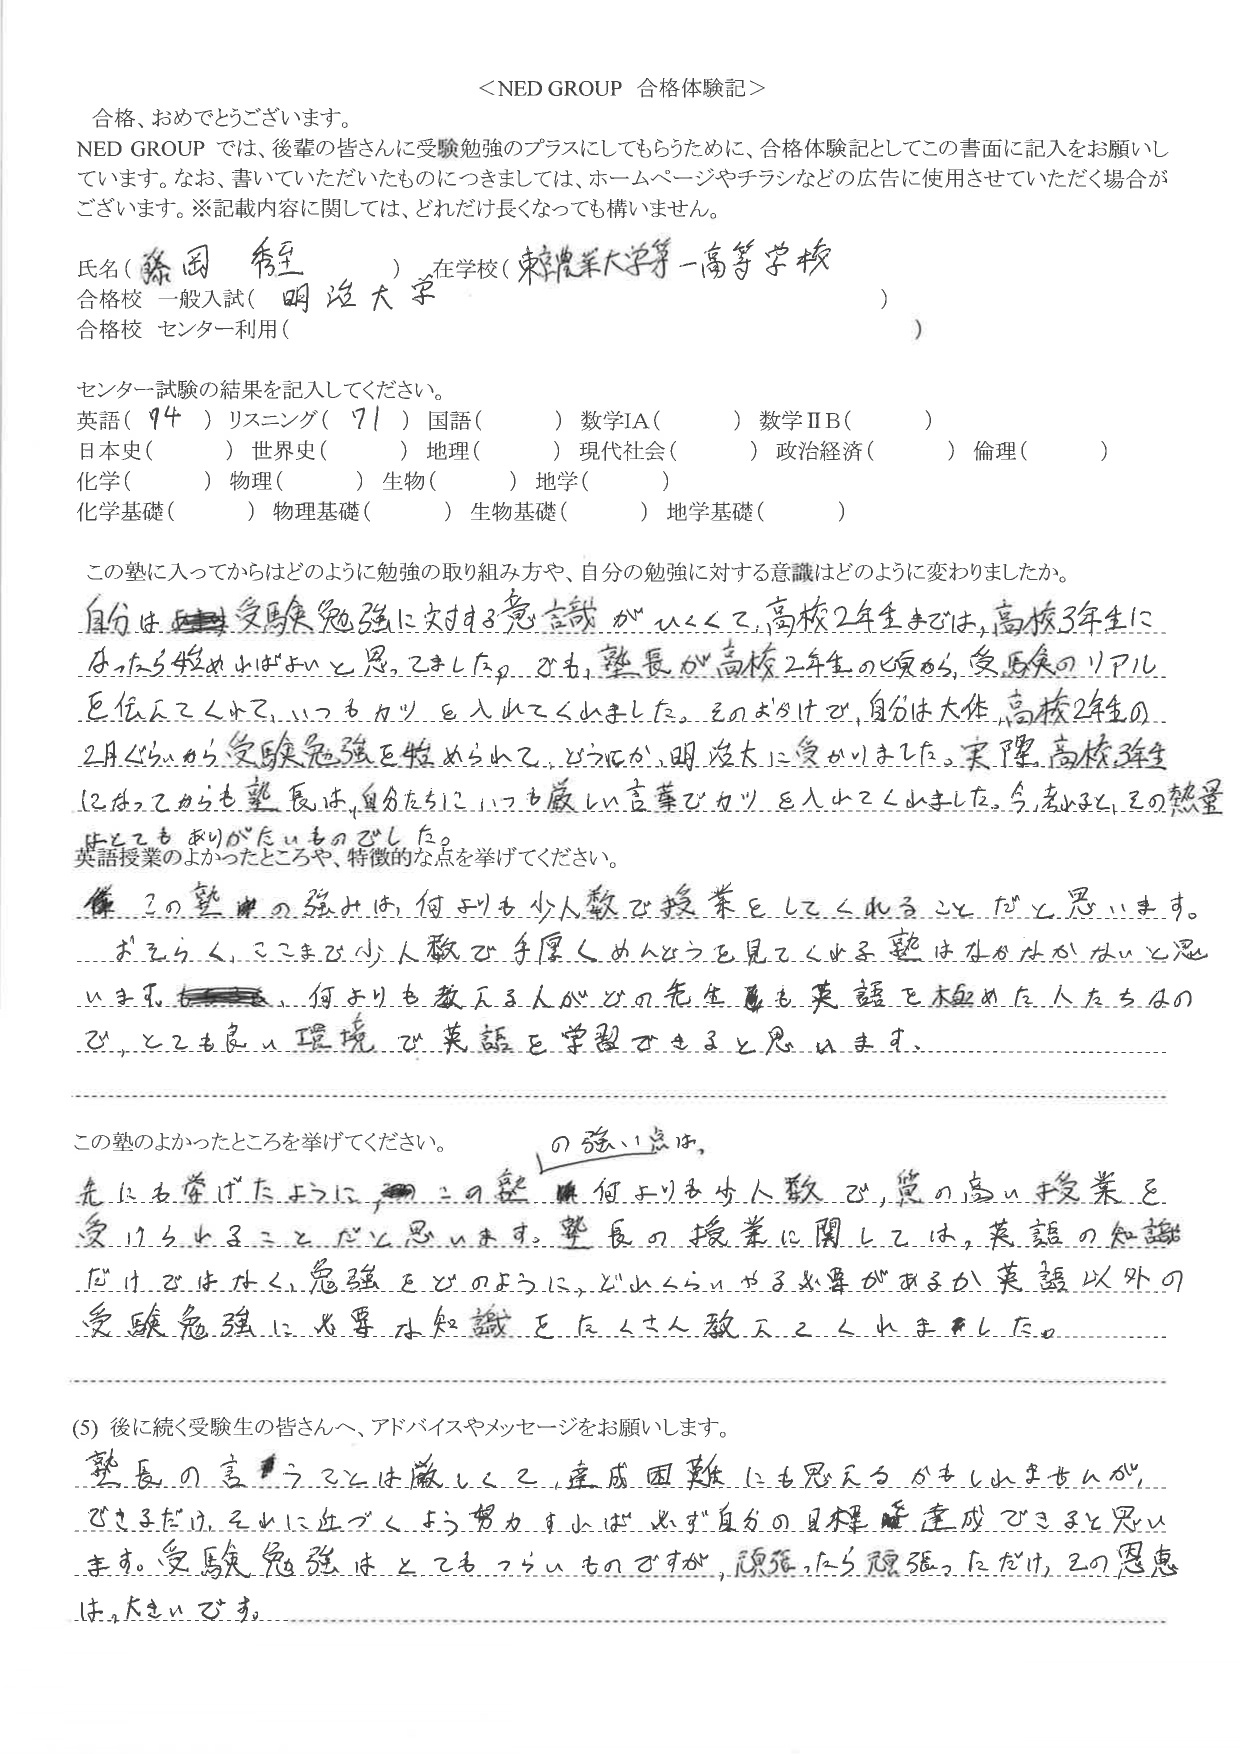 ＜NED GROUP 合格体験記＞
合格、おめでとうございます。
NED GROUP では、後輩の皆さんに受験勉強のプラスにしてもらうために、合格体験記としてこの書面に記入をお願いし
ています。なお、書いていただいたものにつきましては、ホームページやチラシなどの広告に使用させていただく場合が
ございます。※記載内容に関しては、どれだけ長くなっても構いません。
氏名( 藤岡 秀至 ) 在学校( 東京農業大学第一高等学校
合格校 一般入試( 明治大学 )
合格校 センター利用( )
センター試験の結果を記入してください。
英語( 94 ) リスニング( 71 ) 国語( ) 数学IA( ) 数学ⅡB( )
日本史( ) 世界史( ) 地理( ) 現代社会( ) 政治経済( ) 倫理( )
化学( ) 物理( ) 生物( ) 地学( )
化学基礎( ) 物理基礎( ) 生物基礎( ) 地学基礎( )
この塾に入ってからはどのように勉強の取り組み方や、自分の勉強に対する意識はどのように変わりましたか。
自分は受験勉強に対する意識がひくくて、高校2年生までは、高校3年生に
なったら始めればよいと思ってました。でも、塾長が高校2年生の頃から、受験のリアル
を伝えてくれて、いつもカツを入れてくれました。そのおかげで、自分は大体、高校2年生の
2月ぐらいから受験勉強を始められて、どうにか、明治大に受かりました。実際、高校3年生
になってからも塾長は、自分たちにいつも厳しい言葉でカツを入れてくれました。今、考れると、その熱量
はとてもありがたいものでした。
英語授業のよかったところや、特徴的な点を挙げてください。
この塾の強みは、何よりも少人数で授業をしてくれることだと思います。
おそらく、ここまで少人数で手厚くめんどうを見てくれる塾はなかなかないと思
います。何よりも教える人がどの先生も英語を極めた人たちなの
で、とても良い環境で英語を学習できると思います。
この塾のよかったところを挙げてください。
の強い点は、
先にも挙げたように、この塾何よりも少人数で、質の高い授業を
受けられることだと思います。塾長の授業に関しては、英語の知識
だけではなく、勉強をどのように、どれくらいやる必要があるか英語以外の
受験勉強に必要な知識をたくさん教えてくれました。
(5) 後に続く受験生の皆さんへ、アドバイスやメッセージをお願いします。
塾長の言うことは厳しくて、達成困難にも思えるかもしれませんが、
できるだけ、それに近づくよう努力すれば必ず自分の目標達成できると思い
ます。受験勉強はとてもつらいものですが、頑張ったら頑張っただけ、その恩恵
は、大きいです。